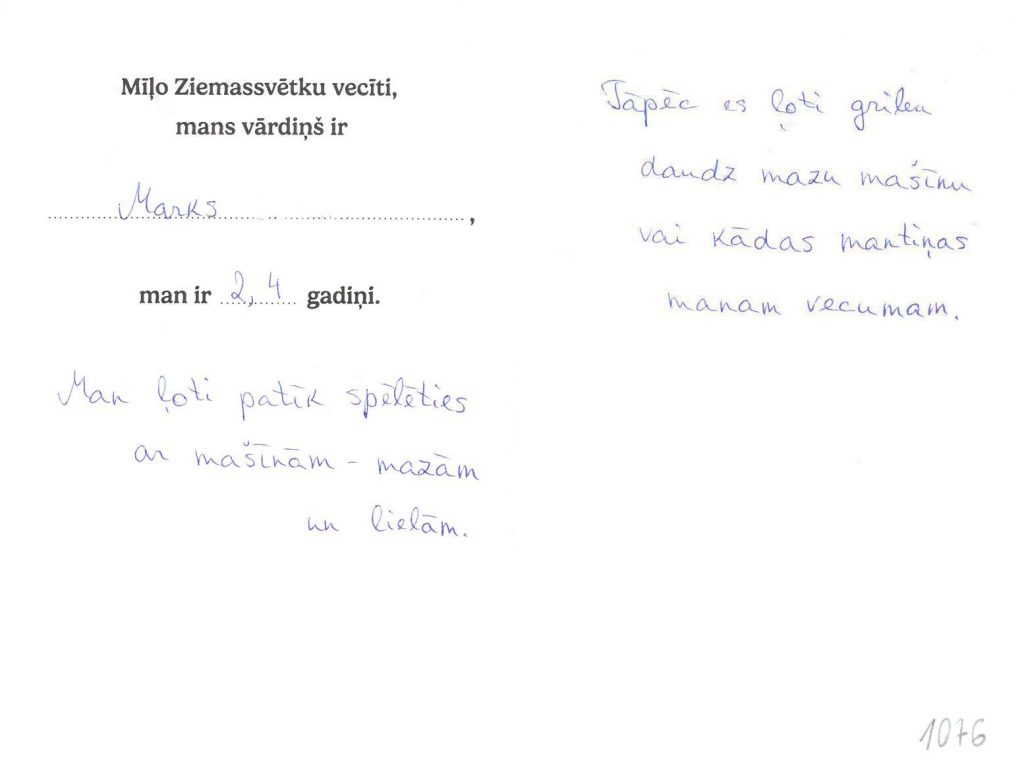 Mīļo Ziemassvētku vecīti,
mans vārdiņš ir
Marks,
man ir 2,4 gadiņi.
Man ļoti patīk spēlēties
ar mašīnām - mazām
un lielām.
Tāpēc es ļoti gribu
daudz mazu mašīnu
vai kādas mantiņas
manam vecumam.
1076